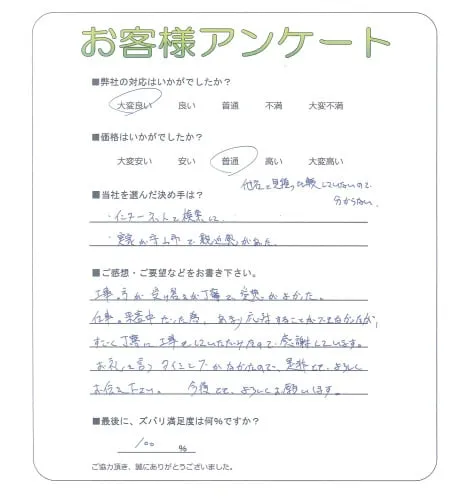 お客様アンケート
■弊社の対応はいかがでしたか？
大変良い 良い 普通 不満 大変不満
■価格はいかがでしたか？
大変安い 安い 普通 高い 大変高い
他社と見積り比較していないので
分からない
■当社を選んだ決め手は？
・インターネットで検索して
・実家が手山市で親近感があった。
■ご感想・ご要望などをお書き下さい。
工事の方が受け答えが丁寧で感じがよかった。
仕事の 中だった為、あまり応対することができなかったが、
すごく丁寧に工事をしていただけたので感謝しています。
お礼を言うタイミングがなかったので、是非とも、よろしく
お伝え下さい。 今後とも、よろしくお願いします。
■最後に、ズバリ満足度は何％ですか？
100 ％
ご協力頂き、誠にありがとうございました。